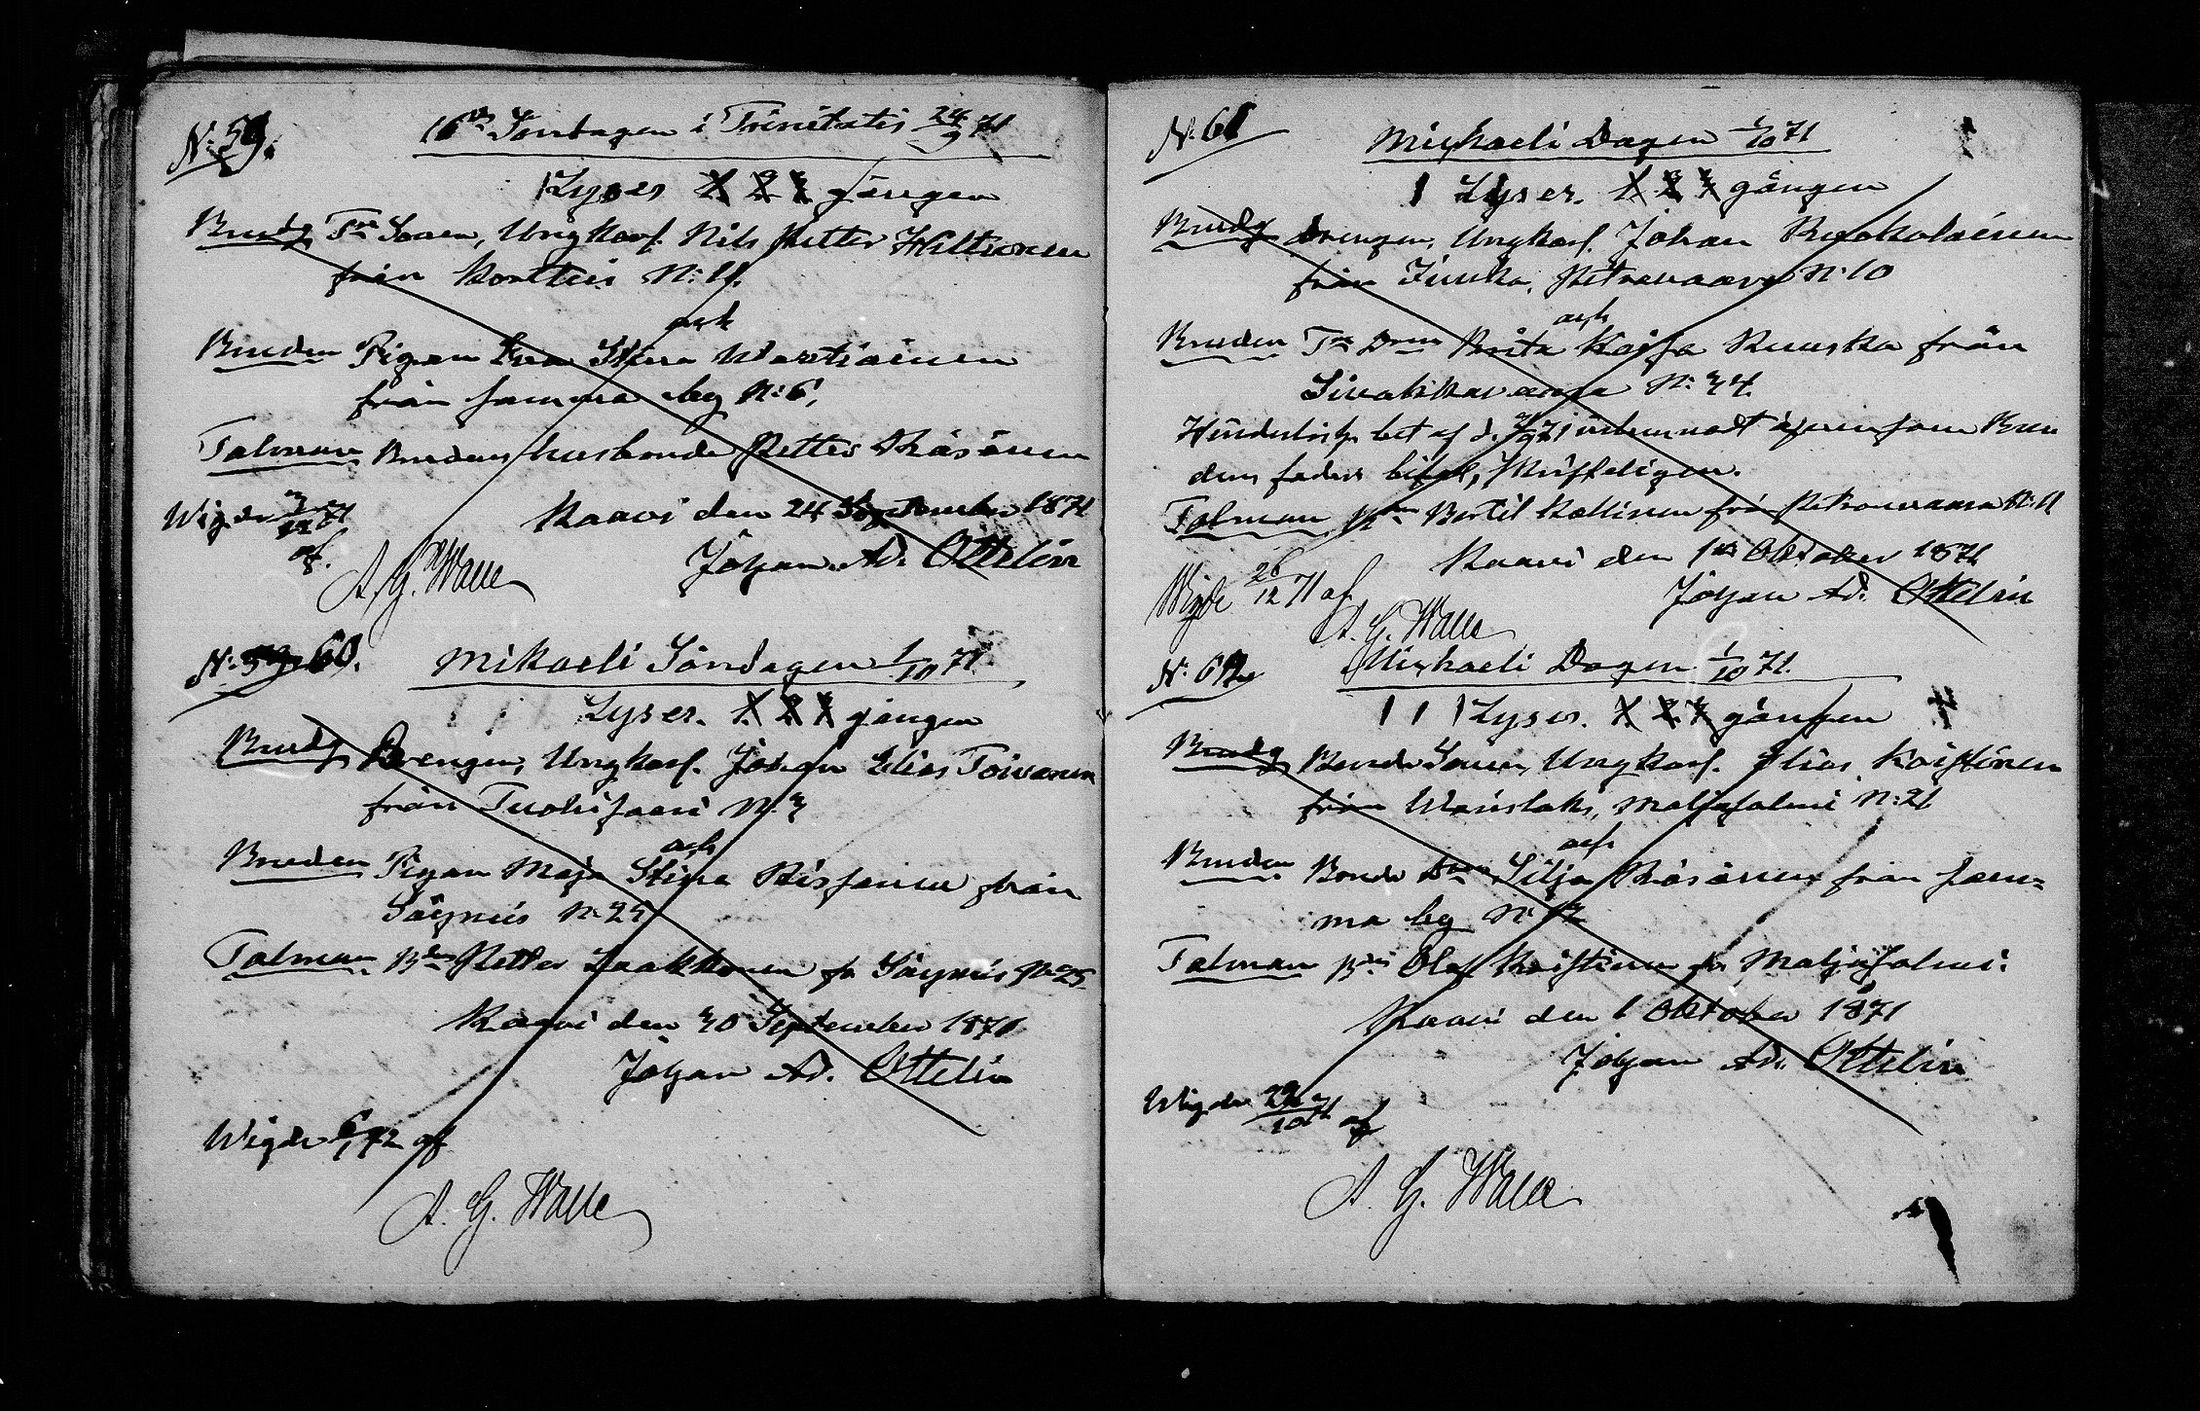 N: 59.
16de Söndagen i Trinitatis 24/9 71
Lyses 1. 2. 3 gången
Brudg Tr Sonen, Ungkarl. Nils Petter
från Kortteis N: 11.
och
Bruden Pigan Eva Stina Wartiainen
från samma by N: 6,
Talman Brudens husbonde Petter Räsänen
Kaavi den 24 September 1871
Wigde 71
af.
A. G. Walle
Johan Ad. Ottelin
N: 60.
Mikaeli Söndagen 1/10 71.
Lyses. 1. 2 3 gången
Brudg Drengen, Ungkarl. Johan Elias Toivanen
från Tuohisaari N: 3
och
Bruden Pigan Maja Stina från
Säyneis N: 25
Talman Bden Petter Laakkonen fr Säyneis No 25
Kaavi den 30 September 1871
Johan Ad. Ottelin
Wigde 6/1 72 af
A. G. Walle
N: 61
Michaeli Dagen 1/10 71
Lyses. 1. 2 3 gången
Brudg Drengen, Ungkarl. Johan Ruokolainen
från Juuka, Petrovaara N: 10
och
Bruden Brita Kajsa Ruuska från
Sivakkavaara N: 34.
af d.
dens faders
Talman Bertil Kallinen från Petrovaara N: 11
Kaavi den 1 Oktober 1871
Wigde 26/12 71 af
Johan Ad. Ottelin
A. G. Walle
N: 62
Michaeli Dagen 1/10 71.
Lyses. 1. 2. 3 gången
Brudg Bonde Sonen, Ungkarl. Elias Koistinen
från Wänslaks, Maljasalmi N: 21
och
Bruden Bonde Silja Räsänen från sam=
ma by N: 12
Talman Olof Koistinen fr Maljasalmi.
Kaavi den 1 Oktober 1871
Johan Ad. Ottelin
Wigde 22/10 71 af
A. G. Walle